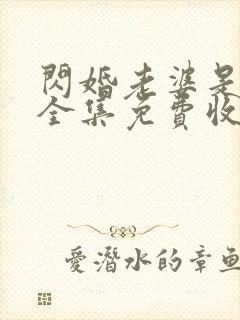 閃婚老婆是
全集免費收
愛潛水的章魚